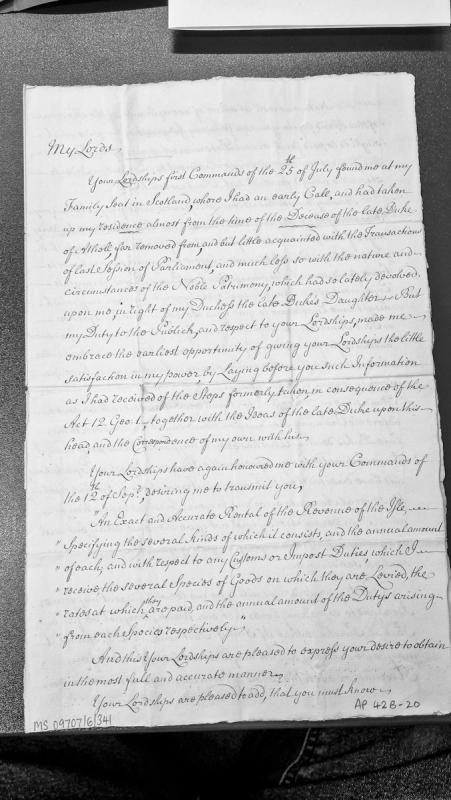 My Lords,
Your Lordships first Commands of the 25th of July found me at my
Family Seat in Scotland, where I had an early Call, and had taken
up my residence almost from the time of the Decease of the late Duke
of Atholl, far removed from, and but little acquainted with the Transactions
of last Session of Parliament, and much less so with the nature and
circumstances of the Noble Patrimony, which had so lately devolved
upon me in right of my Duchess the late Duke's Daughter But
my Duty to the Publick, and respect to your Lordships, made me
embrace the earliest opportunity of giving your Lordships the little
satisfaction in my power, by Laying before you such Information
as I had received of the Steps formerly taken in consequence of the
Act 12. Geo: 1. together with the Ideas of the late Duke upon this
head, and the Correspondence of my own with his.
Your Lordships have again honoured me with your Commands of
the 12th of Sepr., desiring me to transmit you,
"An Exact and Accurate Rental of the Revenue of the Isle,
"Specifying the several kinds of which it consists, and the annual amount
"of each; and with respect to any Customs or Impost Duties, which I
"receive, the several Species of Goods on which they are Levied, the
"rates at which they are paid, and the annual amount of the Dutys arising
"from each Species respectively."
And this Your Lordships are pleased to express your desire to obtain
in the most full and accurate manner,
Your Lordships are pleased to add, that you must know
MS 09707/6/341
AP 42B-20